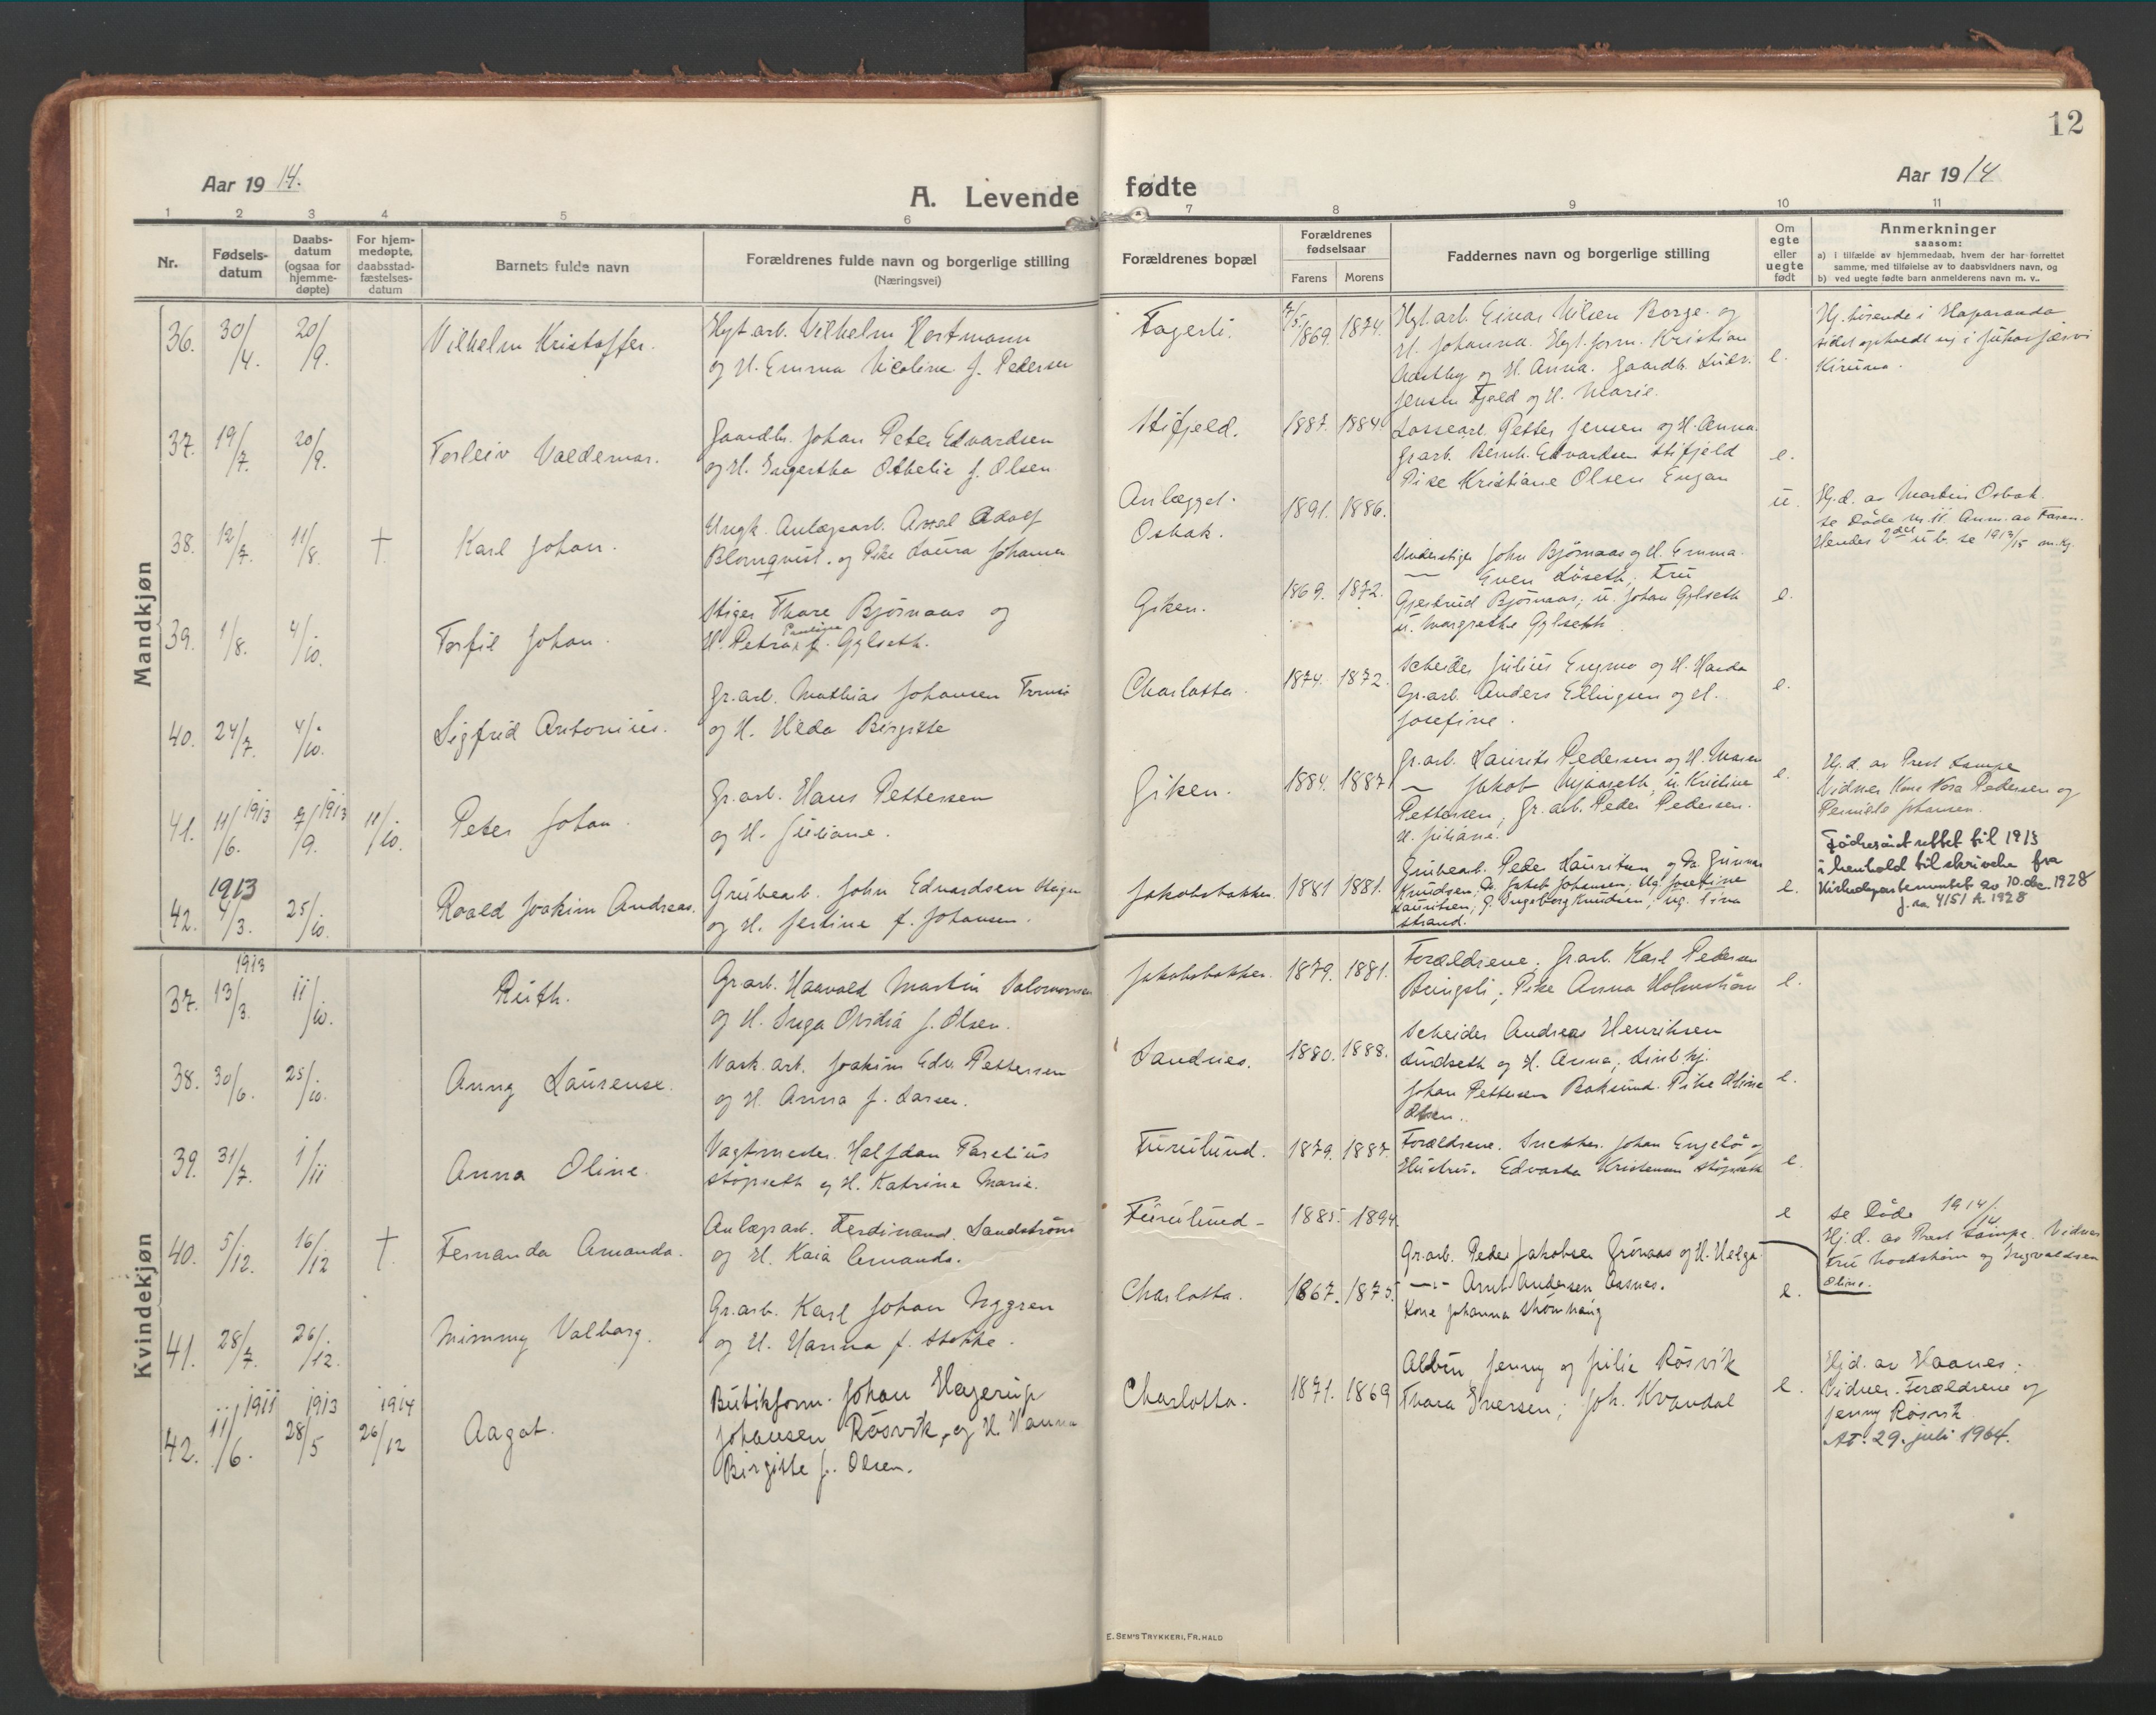 12
Aar 1914.
A. Levende
fødte
Aar 1914
1 2 3 4 5 6 7 8 9 10 11
Nr.
Fødsels-
datum
Daabs-
datum
(ogsaa for
hjemme-
døpte)
For hjem-
medøpte,
daabsstad-
fæstelses-
datum
Barnets fulde navn
Forældrenes fulde navn og borgerlige stilling
(Næringsvei)
Forældrenes bopæl
Forældrenes
fødselsaar
Farens Morens
Faddernes navn og borgerlige stilling
Om
egte
eller
uegte
født
Anmerkninger
saasom:
a) i tilfælde av hjemmedaab, hvem der har forrettet
samme, med tilføielse av to daabsvidners navn, og
b) ved uegte fødte barn anmelderens navn m. v..
Mandkjøn
36. 30/4. 20/9. Vilhelm Kristoffer.
Hyt.arb. Vilhelm Hortmann
og H. Emma Nicoline f. Pedersen
Fagerli. 7/5 1869. 1874.
Hyt.arb. Einar Nilsen Borge og
H. Johanna. Hyt.form. Kristian
og H. Anna. Gaardbr. Ludv.
Jensen Fjeld og H. Marie.
e.
Hj.hørende i Haparanda
sidst opholdt sig i Jukasjærvi
Kiruna.
37. 19/7. 20/9. Torleiv Valdemar.
Gaardbr. Johan Peter Edvardsen
og H. Ingertha Othelie f. Olsen
Stifjeld. 1887. 1884.
Lossearb. Petter Jensen og H. Anna.
Gr.arb. Bernh. Edvardsen Stifjeld
Pike Kristiane Olsen Engan
e.
38. 12/7. 11/8. † Karl Johan.
Ungk. Anlægsarb. Axel Adolf
Blomqvist. og Pike Laura Johansen
Anlægget.
Osbak.
1891. 1886.
u.
Hj.d. av Martin Osbak.
se Døde nr. 11. Anm. av Faren.
Hendes 2det u.b. se 1913/15 m.kj.
39. 1/8. 4/10. Torfil Johan.
Stiger Thore Bjørnaas og
H. Petra Pauline f. Gylseth.
Giken. 1869. 1872.
Understiger John Bjørnaas og H. Emma.
— Even Løseth, Fru
Gjertrud Bjørnaas, u. Johan Gylseth
u. Margrethe Gylseth
e.
40. 24/7. 4/10. Sigfrid Antonius.
Gr.arb. Mathias Johansen
og H. Hilda Birgitte
Charlotta. 1874. 1872.
Scheider Julius Engmo og H. Handa
Gr.arb. Anders Ellingsen og H.
Josefine.
e.
41. 11/6. 1913 7/9. 1913 11/10. Peter Johan.
Gr.arb. Hans Pettersen
og H. Juliane.
Giken. 1884. 1887
Gr.arb. Laurits Pedersen og H. Maren
— Jakob Mjaaseth, u. Kristine
Pettersen, Gr.arb. Peder Pedersen.
H. Juliane.
e.
Hj.d. av Prest Lampe
Vidner Kone Nora Pedersen og
Pernille Johansen.
42. 1913 4/3. 25/10. Roald Joakim Andreas.
Grubearb. John Edvardsen
og H. Jertine f. Johansen.
Jakobsbakken 1881 1881.
Grubearb. Peder Lauritsen, og Gr. Gunnar
Knudsen, Gr. Jakob Johansen, Ug. Josefine
Lauritsen, G. Ingeborg Knudsen, ug. Tina
Strand.
e.
Fødselsåret rettet til 1913
i henhold til skrivelse fra
Kirkedepartementet av 10. des. 1928
J. nr. 4151 A. 1928
Kvindekjøn
37. 1913 13/3. 11/10. Ruth.
Gr.arb. Haavald Martin Salomonsen
og H. Inga Ovidia f. Olsen.
Jakobsbakken. 1879. 1881.
Forældrene. Gr.arb. Karl Pedersen
Beingsli, Pike Anna Holmstrøm
e.
38. 30/6. 25/10. Anny Laurense.
Vask.arb. Joakim Edv. Pettersen
og H. Anna f. Larsen.
Sandnes. 1880. 1888.
Scheider Andreas Henriksen
Lundseth og H. Anna, Linb.kj.
Johan Pettersen Baksund. Pike Oline
Olsen.
e.
39. 31/7. 1/11 Anna Oline.
Vagtmester. Halfdan Parelius
Støpseth og H. Katrine Marie.
Furulund. 1879. 1887.
Forældrene. Snekker. Johan Engelø og
Hustru. Edvarda Kristensen Støpseth
e.
40. 5/12. 16/12 †. Fernanda Amanda.
Anlægsarb. Ferdinand Sandstrøm
og H. Kaia Amanda.
Furulund - 1885 1894.
e
se Døde 1914/14.
Hj.d. av Prest Lampe. Vidner
Fru Nordstrøm og Ingvaldsen
Oline.
41. 28/7. 26/12. Mimmy Valborg.
Gr.arb. Karl Johan Nygren
og H. Hanna f. Stokke.
Charlotta. 1867. 1875.
Gr.arb. Peder Jakobsen Grønaas og H. Helga.
—"— Arnt Andersen Aasnes.
Kone Johanna Strømhaug
e.
42. 11/6. 1911 28/5 1913 26/12 1914 Aagot.
Butikform. Johan Hagerup
Johansen Røsvik, og H. Hanna
Birgitte f. Olsen.
Charlotta. 1871. 1869
Albin, Jenny og Julie Røsvik
Thora Iversen, Joh. Kvandal
e.
Hjd. av Haanes.
Vidner. Forældrene og
Jenny Røsvik
At. 29. juli 1964.
E. SEM'S TRYKKERI, FR.HALD